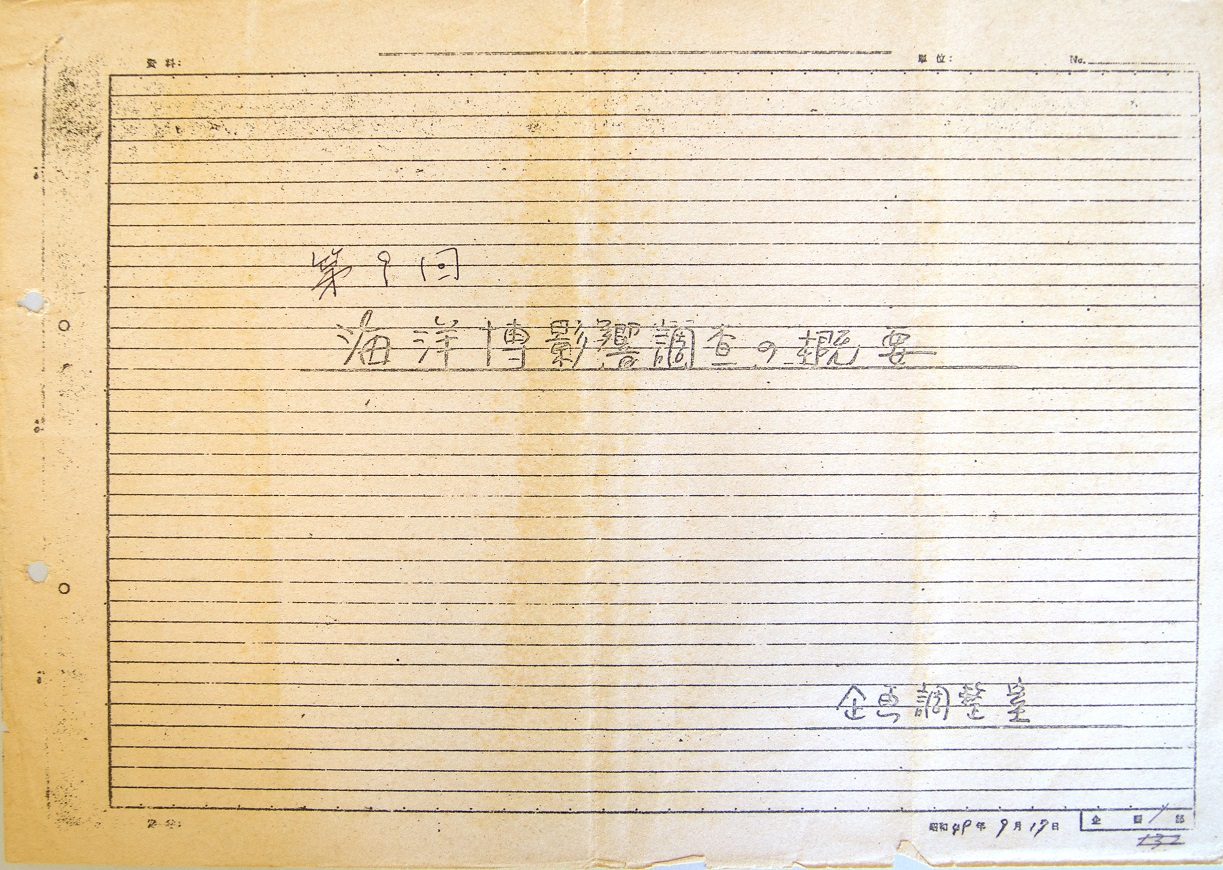 資料: 単位: No.
第9回
海洋博影響調査の概要
企画調整室
昭和49年9月19日 企画部
132